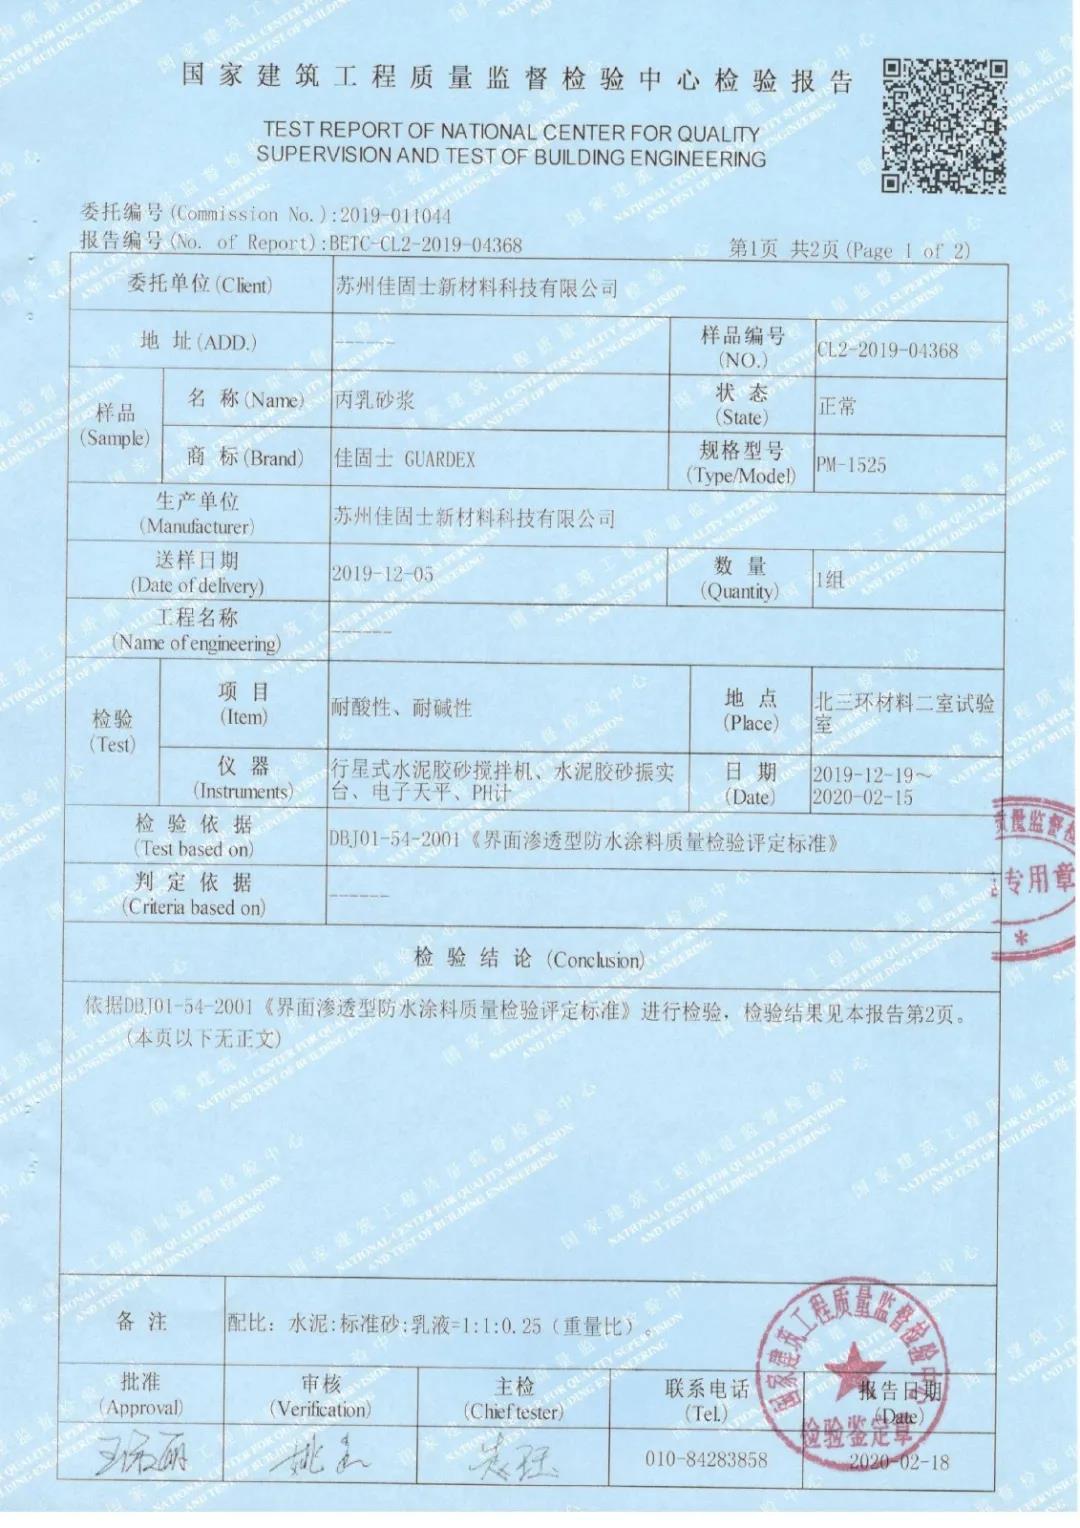 国家建筑工程质量监督检验中心检验报告
TEST REPORT OF NATIONAL CENTER FOR QUALITY
SUPERVISION AND TEST OF BUILDING ENGINEERING
委托编号(Commission No.):2019-011044
报告编号(No. of Report):BETC-CL2-2019-04368
第1页 共2页(Page 1 of 2)
委托单位(Client)
苏州佳固士新材料科技有限公司
地 址(ADD.)
------
样品编号
(NO.)
CL2-2019-04368
样品
(Sample)
名 称(Name)
丙乳砂浆
状 态
(State)
正常
商 标(Brand)
佳固士 GUARDEX
规格型号
(Type/Model)
PM-1525
生产单位
(Manufacturer)
苏州佳固士新材料科技有限公司
送样日期
(Date of delivery)
2019-12-05
数 量
(Quantity)
1组
工程名称
(Name of engineering)
------
检验
(Test)
项 目
(Item)
耐酸性、耐碱性
地 点
(Place)
北三环材料二室试验
室
仪 器
(Instruments)
行星式水泥胶砂搅拌机、水泥胶砂振实
台、电子天平、PH计
日 期
(Date)
2019-12-19~
2020-02-15
检 验 依 据
(Test based on)
DBJ01-54-2001《界面渗透型防水涂料质量检验评定标准》
判 定 依 据
(Criteria based on)
------
检 验 结 论 (Conclusion)
依据DBJ01-54-2001《界面渗透型防水涂料质量检验评定标准》进行检验，检验结果见本报告第2页。
(本页以下无正文)
质量监督检
专用章
备 注
配比：水泥:标准砂:乳液=1:1:0.25（重量比）。
批准
(Approval)
审核
(Verification)
主检
(Chief tester)
联系电话
(Tel.)
报告日期
(Date)
010-84283858
2020-02-18
国家建筑工程质量监督检验中心
检验鉴定章